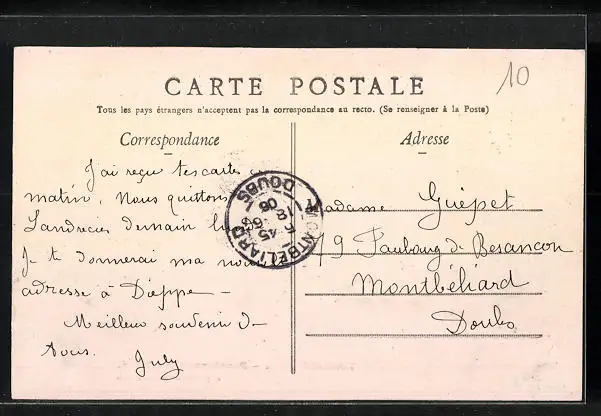 10
CARTE POSTALE
Tous les pays étrangers n'acceptent pas la correspondance au recto. (Se renseigner à la Poste)
Correspondance
Adresse
J'ai reçu tes cartes ce
matin. Nous quittons
Landrecies demain
Je te donnerai ma nouv
adresse à Dieppe —
Meilleur souvenir de
tous.
July
MONTBÉLIARD
DOUBS
6 45
18
06
Madame Guépet
19 Faubourg de Besançon
Montbéliard
Doubs